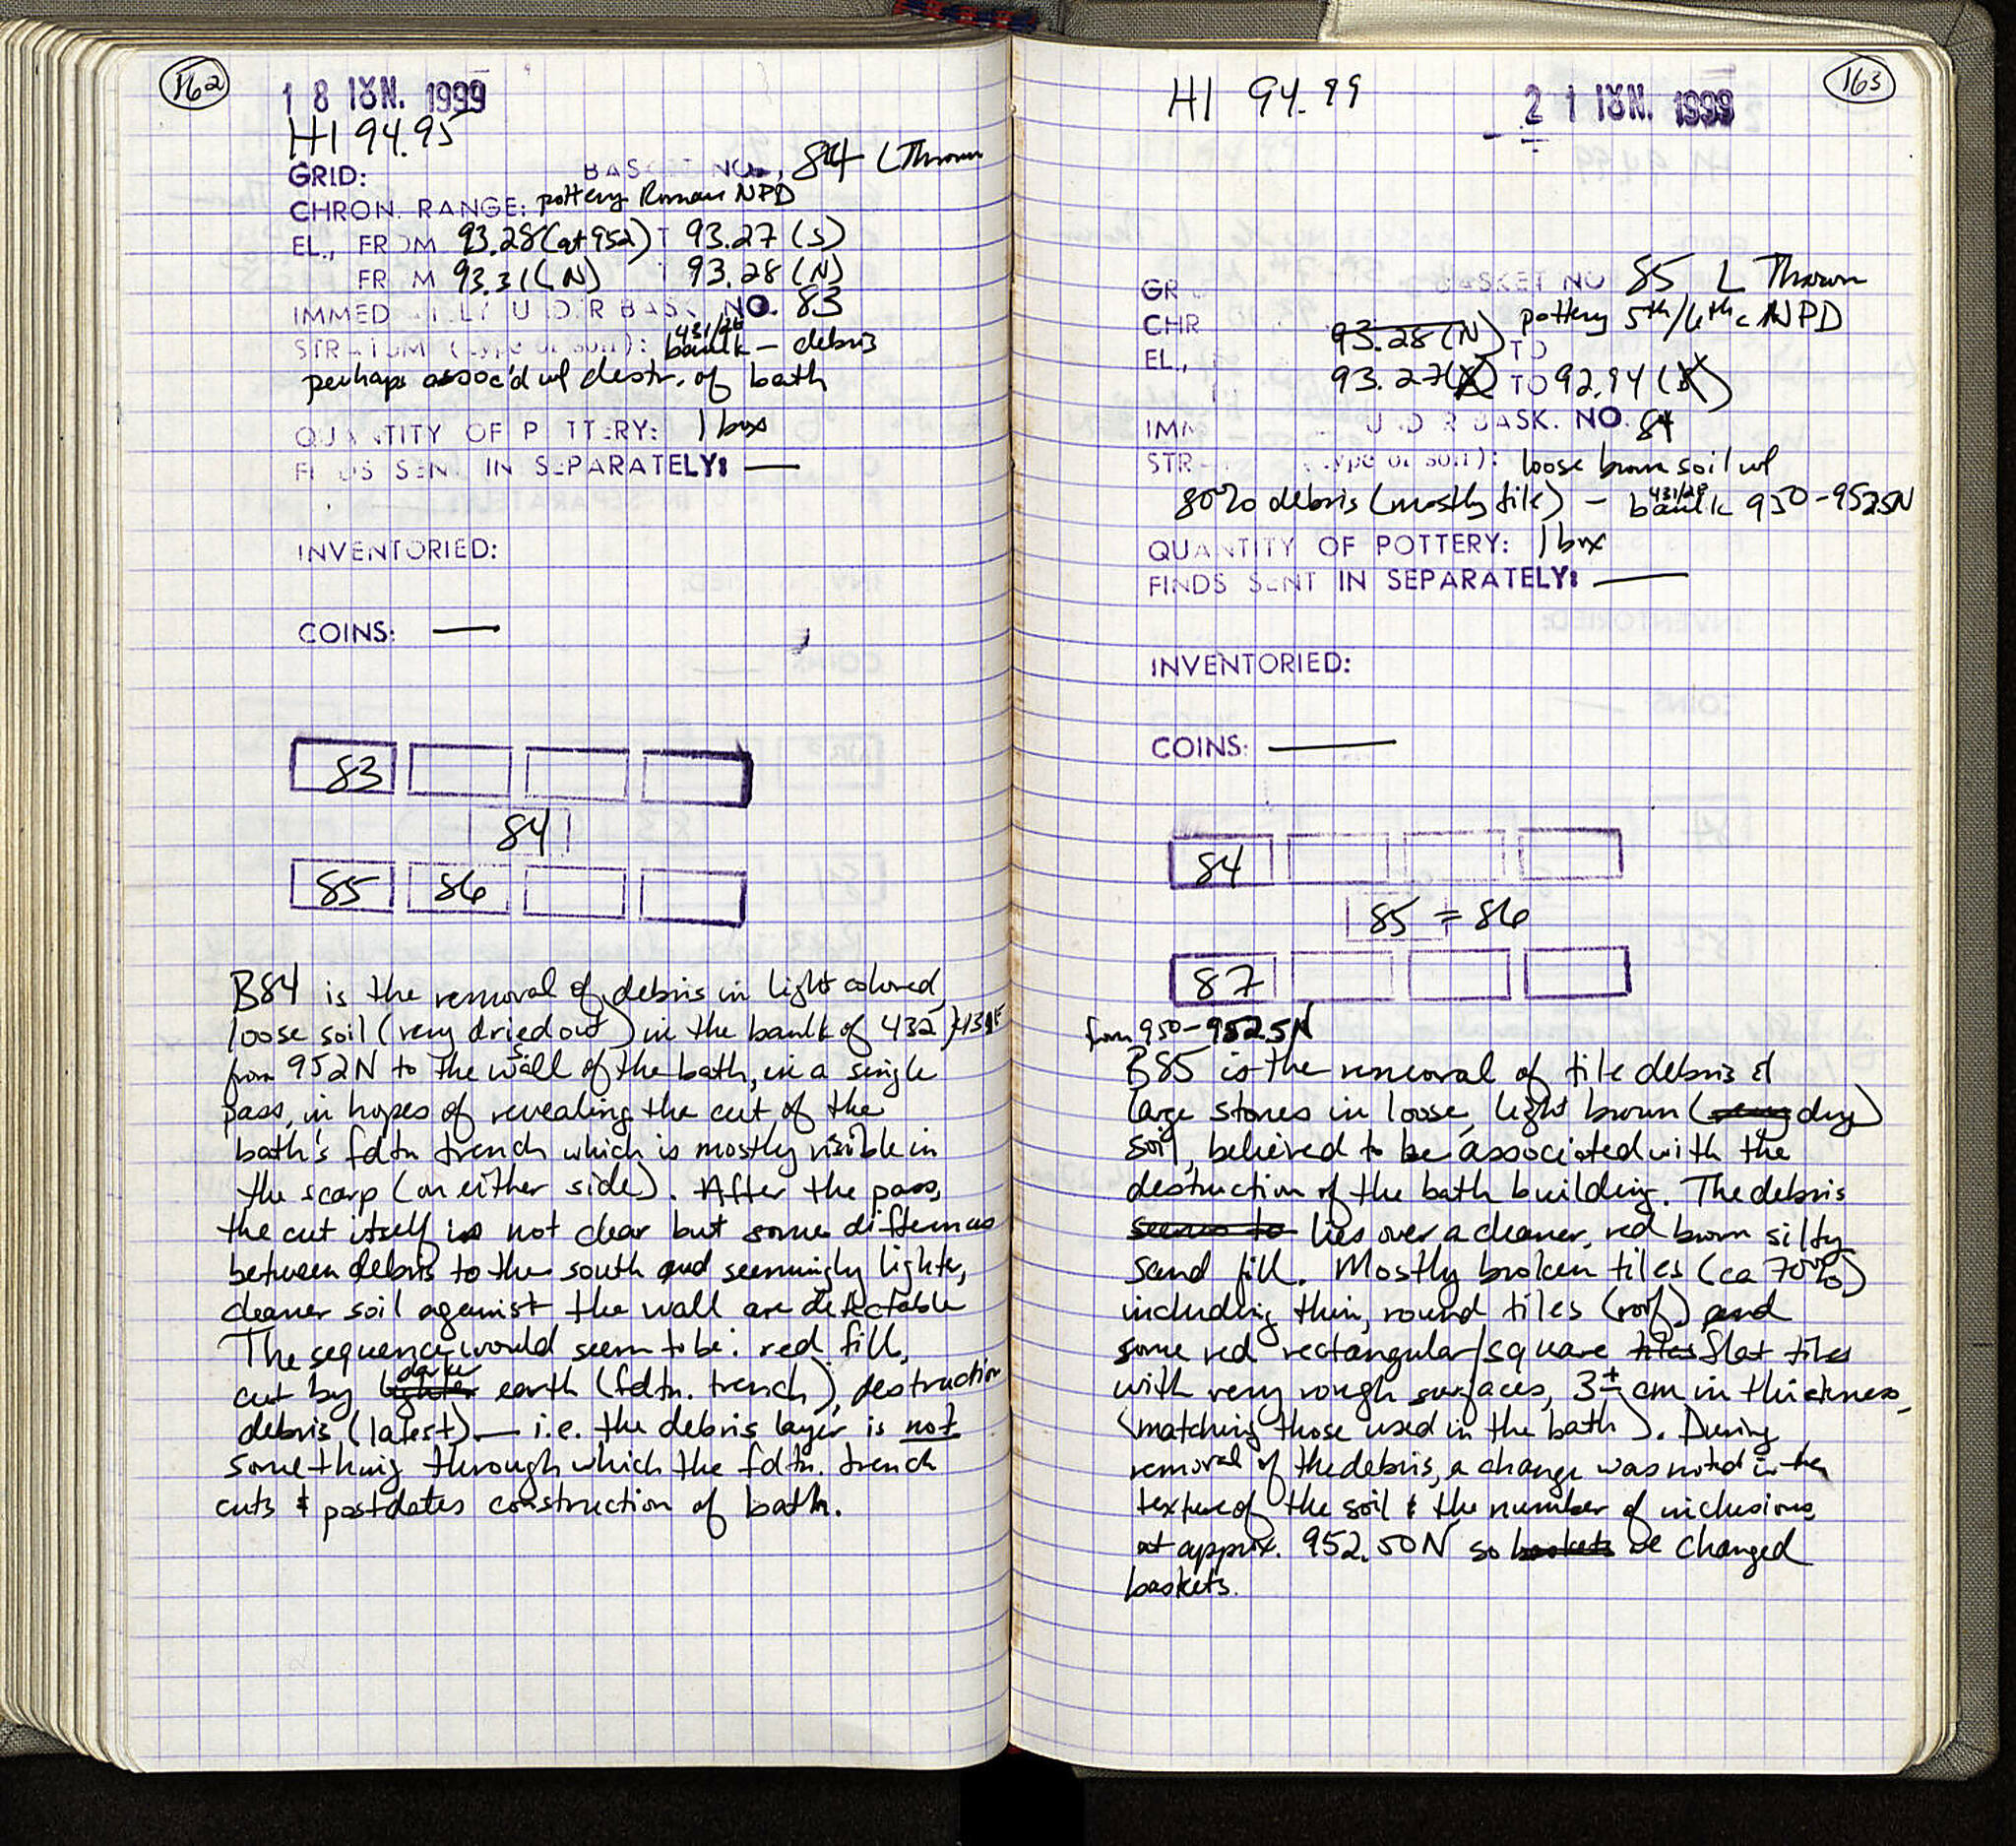 162
18 ΙΟΥΝ. 1999
H1 94.95
GRID: BASKET NO. 84 L Thrown
CHRON. RANGE: pottery Roman NPD
EL., FROM 93.28 (at 952) T 93.27 (S)
FROM 93.31 (N) 93.28 (N)
IMMED LY UNDER BASK NO. 83
STRATUM (type of soil): 431/2 baulk – debris
perhaps assoc'd w/ destr. of bath
QUANTITY OF POTTERY: 1 box
FINDS SENT IN SEPARATELY: —
INVENTORIED:
COINS: —
83
84
85 86
B84 is the removal of debris in light colored,
loose soil (very dried out) in the baulk of 432
from 952N to the wall of the bath, in a single
pass, in hopes of revealing the cut of the
bath's fdtn trench which is mostly visible in
the scarp (on either side). After the pass,
the cut itself is not clear but some differences
between debris to the south and seemingly lighter,
cleaner soil against the wall are detectable
The sequence would seem to be: red fill,
cut by lighter darker earth (fdtn. trench), destruction
debris (latest) — i.e. the debris layer is not
something through which the fdtn. trench
cuts & postdates construction of bath.
163
H1 94.99
21 ΙΟΥΝ. 1999
GR BASKET NO 85 L Thrown
CHR pottery 5th/6th c NPD
EL., 93.28 (N) TO
93.27 TO 92.94
IMM UNDER BASK. NO. 84
STR type of soil): loose brown soil w/
80% debris (mostly tile) – baulk 950–952.5N
QUANTITY OF POTTERY: 1 box
FINDS SENT IN SEPARATELY: —
INVENTORIED:
COINS: —
84
85 = 86
87
from 950–952.5N
B85 is the removal of tile debris &
large stones in loose, light brown (very dry)
soil, believed to be associated with the
destruction of the bath building. The debris
seems to lies over a cleaner, red brown silty
sand fill. Mostly broken tiles (ca 70%)
including thin, round tiles (roof) and
some red rectangular/square tiles flat tiles
with very rough surfaces, 3± cm in thickness
(matching those used in the bath). During
removal of the debris, a change was noted in the
texture of the soil & the number of inclusions
at approx. 952.50N so baskets we changed
baskets.